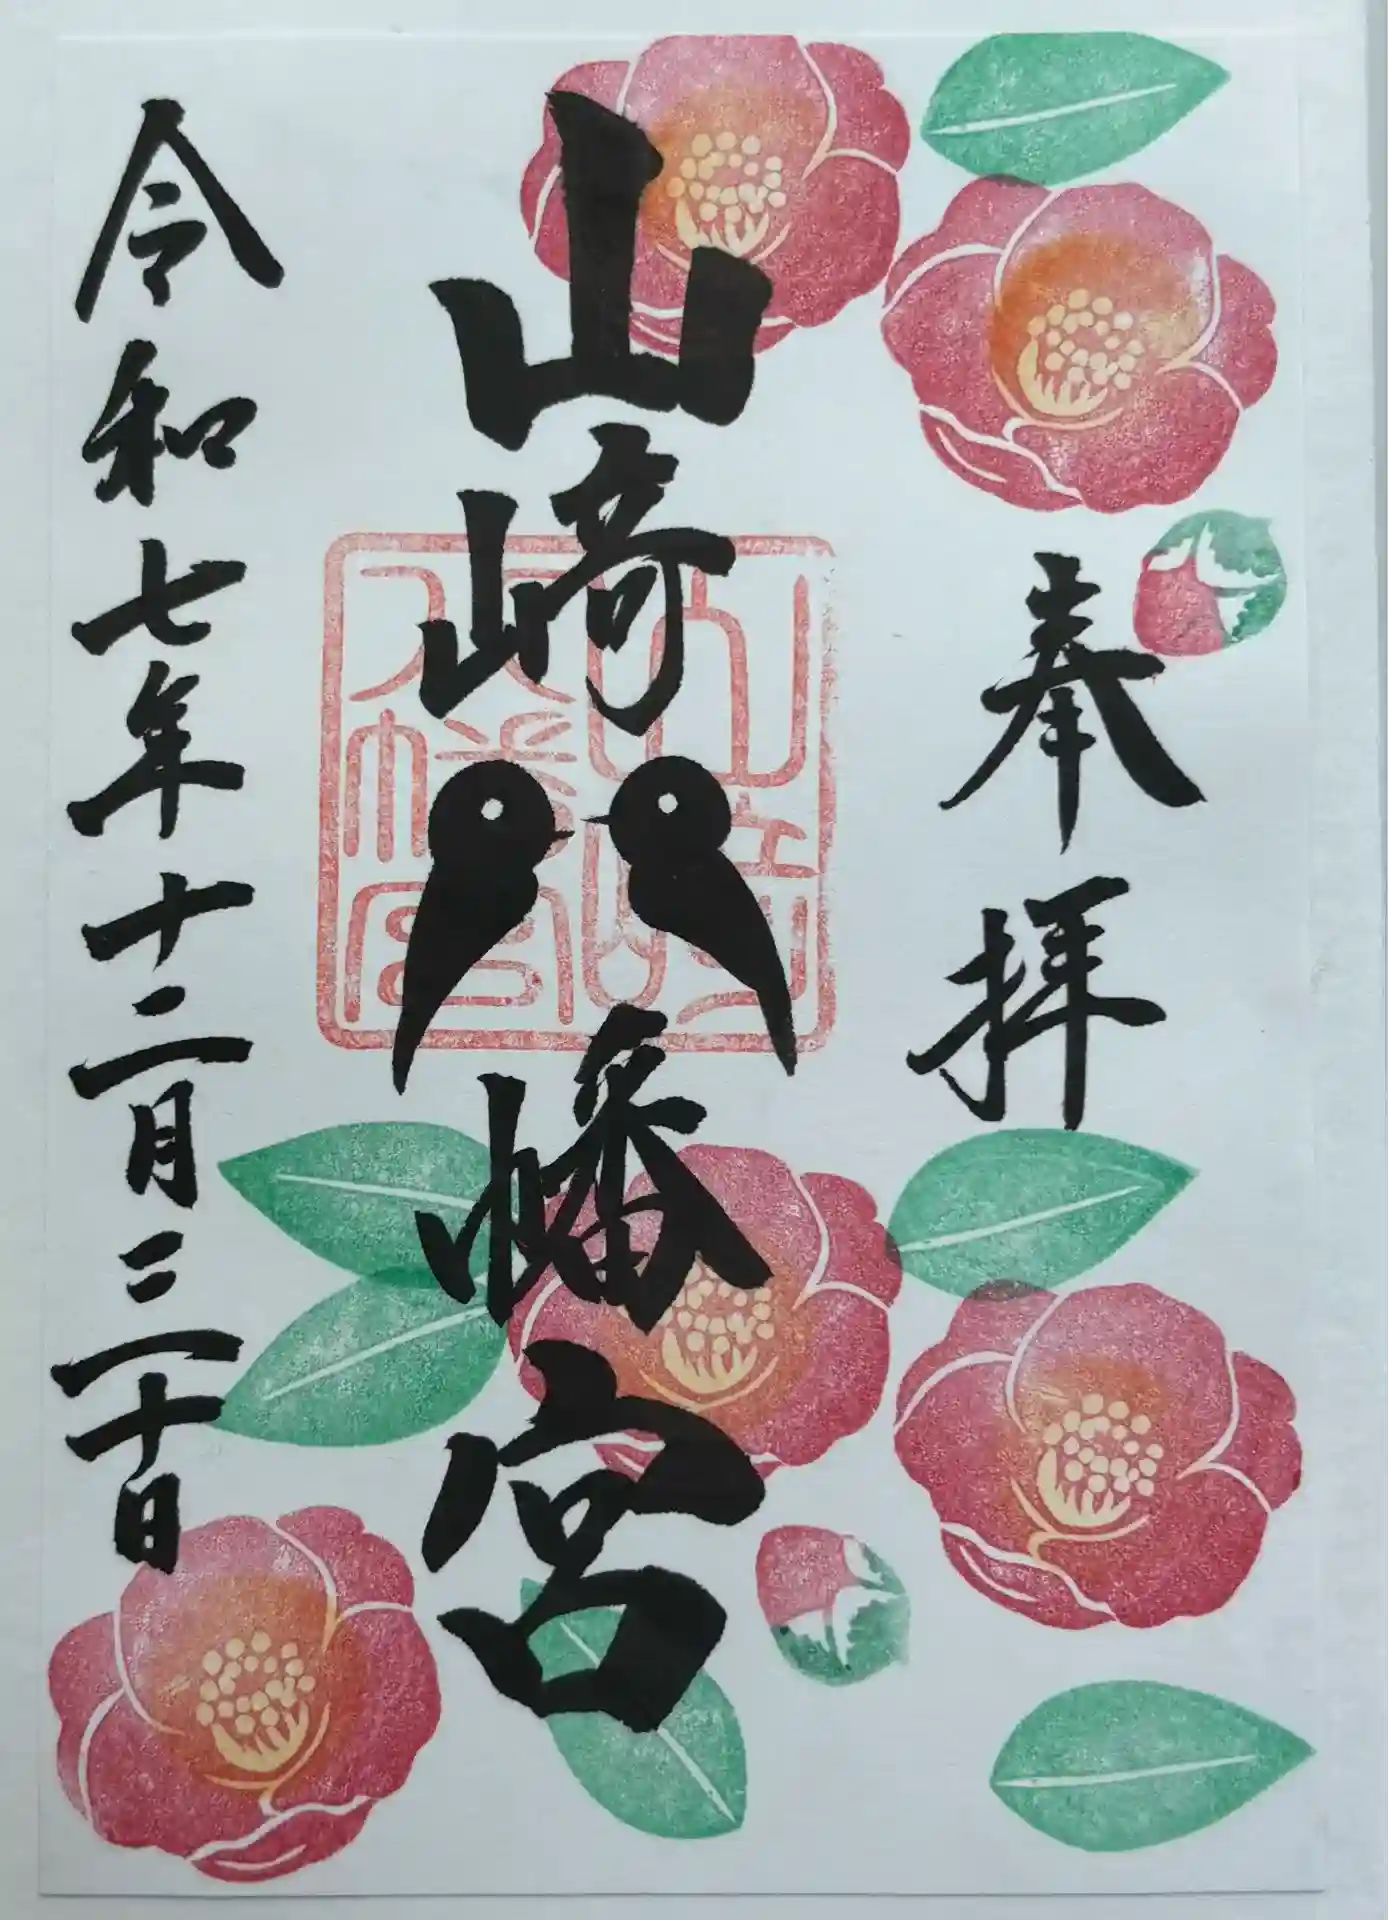 奉拝
山崎八幡宮
山崎
八幡宮
令和七年十二月三十日